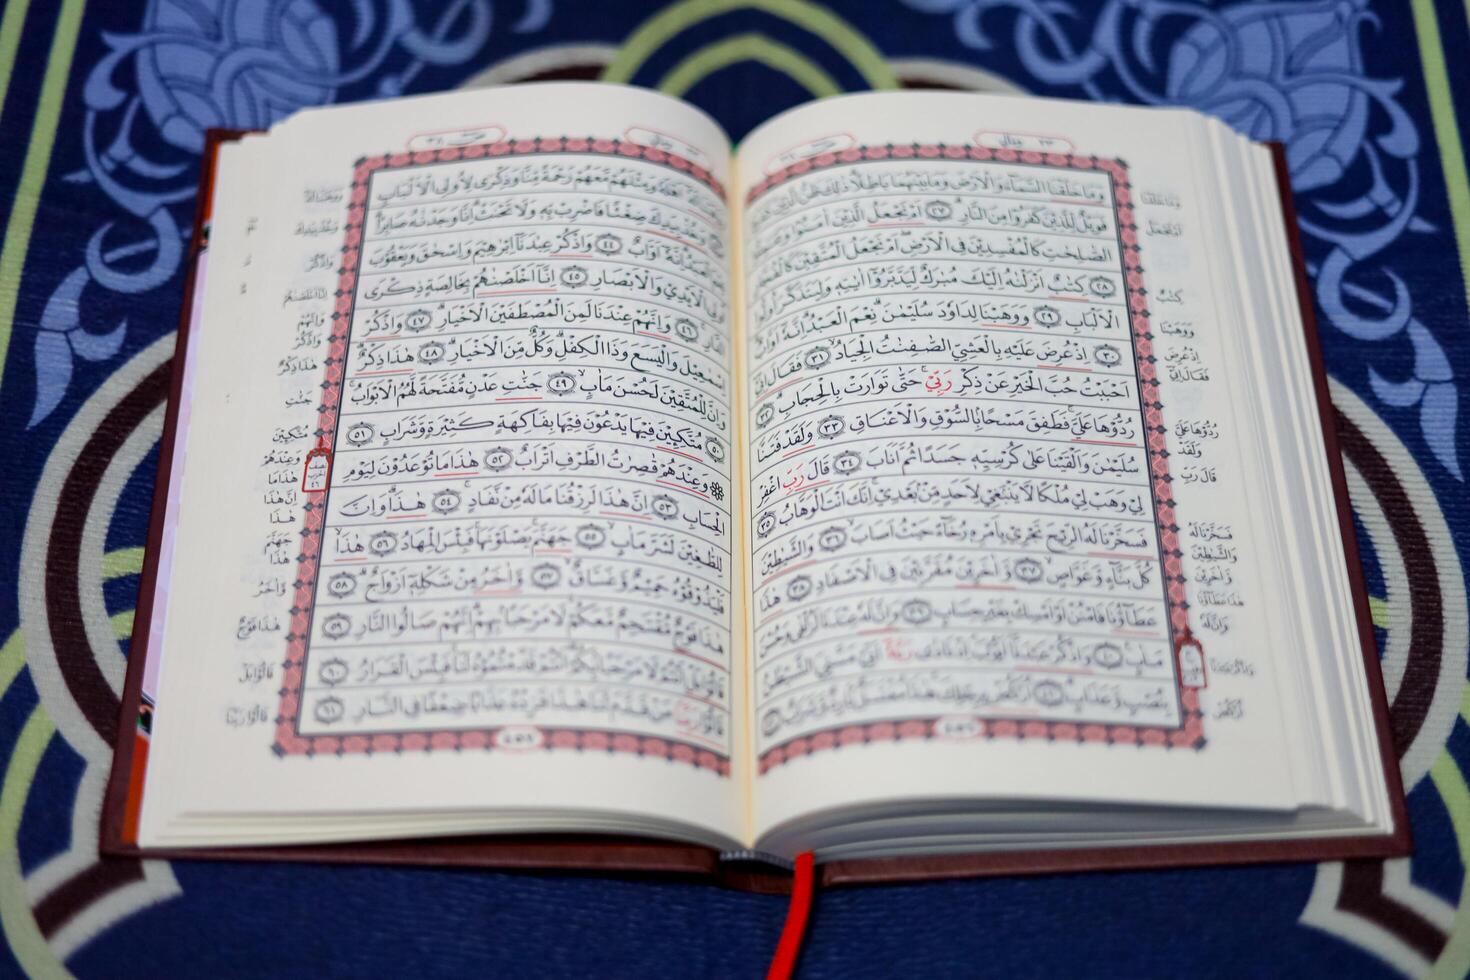 ٢٣ ومالي
وَمَا خَلَقْنَا السَّمَآءَ وَالْاَرْضَ وَمَا بَيْنَهُمَا بَاطِلًا ذٰلِكَ ظَنُّ الَّذِيْنَ كَفَرُوْا
فَوَيْلٌ لِّلَّذِيْنَ كَفَرُوْا مِنَ النَّارِ ٢٧ اَمْ نَجْعَلُ الَّذِيْنَ اٰمَنُوْا وَعَمِلُوا
الصّٰلِحٰتِ كَالْمُفْسِدِيْنَ فِى الْاَرْضِ اَمْ نَجْعَلُ الْمُتَّقِيْنَ كَالْفُجَّارِ
٢٨ كِتٰبٌ اَنْزَلْنٰهُ اِلَيْكَ مُبٰرَكٌ لِّيَدَّبَّرُوْٓا اٰيٰتِهٖ وَلِيَتَذَكَّرَ اُولُوا
الْاَلْبَابِ ٢٩ وَوَهَبْنَا لِدَاوٗدَ سُلَيْمٰنَ نِعْمَ الْعَبْدُ اِنَّهٗٓ اَوَّابٌ
٣٠ اِذْ عُرِضَ عَلَيْهِ بِالْعَشِيِّ الصّٰفِنٰتُ الْجِيَادُ ٣١ فَقَالَ اِنِّيْٓ
اَحْبَبْتُ حُبَّ الْخَيْرِ عَنْ ذِكْرِ رَبِّيْ حَتّٰى تَوَارَتْ بِالْحِجَابِ ٣٢
رُدُّوْهَا عَلَيَّ فَطَفِقَ مَسْحًا بِالسُّوْقِ وَالْاَعْنَاقِ ٣٣ وَلَقَدْ فَتَنَّا
سُلَيْمٰنَ وَاَلْقَيْنَا عَلٰى كُرْسِيِّهٖ جَسَدًا ثُمَّ اَنَابَ ٣٤ قَالَ رَبِّ اغْفِرْ
لِيْ وَهَبْ لِيْ مُلْكًا لَّا يَنْبَغِيْ لِاَحَدٍ مِّنْ بَعْدِيْ اِنَّكَ اَنْتَ الْوَهَّابُ ٣٥
فَسَخَّرْنَا لَهُ الرِّيْحَ تَجْرِيْ بِاَمْرِهٖ رُخَآءً حَيْثُ اَصَابَ ٣٦ وَالشَّيٰطِيْنَ
كُلَّ بَنَّآءٍ وَّغَوَّاصٍ ٣٧ وَّاٰخَرِيْنَ مُقَرَّنِيْنَ فِى الْاَصْفَادِ ٣٨ هٰذَا
عَطَآؤُنَا فَامْنُنْ اَوْ اَمْسِكْ بِغَيْرِ حِسَابٍ ٣٩ وَاِنَّ لَهٗ عِنْدَنَا لَزُلْفٰى وَحُسْنَ
مَاٰبٍ ٤٠ وَاذْكُرْ عَبْدَنَآ اَيُّوْبَ اِذْ نَادٰى رَبَّهٗٓ اَنِّيْ مَسَّنِيَ الشَّيْطٰنُ
بِنُصْبٍ وَّعَذَابٍ ٤١ اُرْكُضْ بِرِجْلِكَ هٰذَا مُغْتَسَلٌ بَارِدٌ وَّشَرَابٌ ٤٢
وَوَهَبْنَا لَهٗٓ اَهْلَهٗ وَمِثْلَهُمْ مَّعَهُمْ رَحْمَةً مِّنَّا وَذِكْرٰى لِاُولِى الْاَلْبَابِ
٤٣ وَخُذْ بِيَدِكَ ضِغْثًا فَاضْرِبْ بِّهٖ وَلَا تَحْنَثْ اِنَّا وَجَدْنٰهُ صَابِرًا
نِعْمَ الْعَبْدُ اِنَّهٗٓ اَوَّابٌ ٤٤ وَاذْكُرْ عِبٰدَنَآ اِبْرٰهِيْمَ وَاِسْحٰقَ وَيَعْقُوْبَ
اُولِى الْاَيْدِيْ وَالْاَبْصَارِ ٤٥ اِنَّآ اَخْلَصْنٰهُمْ بِخَالِصَةٍ ذِكْرَى
الدَّارِ ٤٦ وَاِنَّهُمْ عِنْدَنَا لَمِنَ الْمُصْطَفَيْنَ الْاَخْيَارِ ٤٧ وَاذْكُرْ
اِسْمٰعِيْلَ وَالْيَسَعَ وَذَا الْكِفْلِ وَكُلٌّ مِّنَ الْاَخْيَارِ ٤٨ هٰذَا ذِكْرٌ
وَاِنَّ لِلْمُتَّقِيْنَ لَحُسْنَ مَاٰبٍ ٤٩ جَنّٰتِ عَدْنٍ مُّفَتَّحَةً لَّهُمُ الْاَبْوَابُ
٥٠ مُتَّكِـِٕيْنَ فِيْهَا يَدْعُوْنَ فِيْهَا بِفَاكِهَةٍ كَثِيْرَةٍ وَّشَرَابٍ ٥١
وَعِنْدَهُمْ قٰصِرٰتُ الطَّرْفِ اَتْرَابٌ ٥٢ هٰذَا مَا تُوْعَدُوْنَ لِيَوْمِ
الْحِسَابِ ٥٣ اِنَّ هٰذَا لَرِزْقُنَا مَا لَهٗ مِنْ نَّفَادٍ ٥٤ هٰذَا وَاِنَّ
لِلطّٰغِيْنَ لَشَرَّ مَاٰبٍ ٥٥ جَهَنَّمَ يَصْلَوْنَهَا فَبِئْسَ الْمِهَادُ ٥٦ هٰذَا
فَلْيَذُوْقُوْهُ حَمِيْمٌ وَّغَسَّاقٌ ٥٧ وَّاٰخَرُ مِنْ شَكْلِهٖٓ اَزْوَاجٌ ٥٨
هٰذَا فَوْجٌ مُّقْتَحِمٌ مَّعَكُمْ لَا مَرْحَبًا بِهِمْ اِنَّهُمْ صَالُوا النَّارِ ٥٩
قَالُوْا بَلْ اَنْتُمْ لَا مَرْحَبًا بِكُمْ اَنْتُمْ قَدَّمْتُمُوْهُ لَنَا فَبِئْسَ الْقَرَارُ ٦٠
قَالُوْا رَبَّنَا مَنْ قَدَّمَ لَنَا هٰذَا فَزِدْهُ عَذَابًا ضِعْفًا فِى النَّارِ ٦١